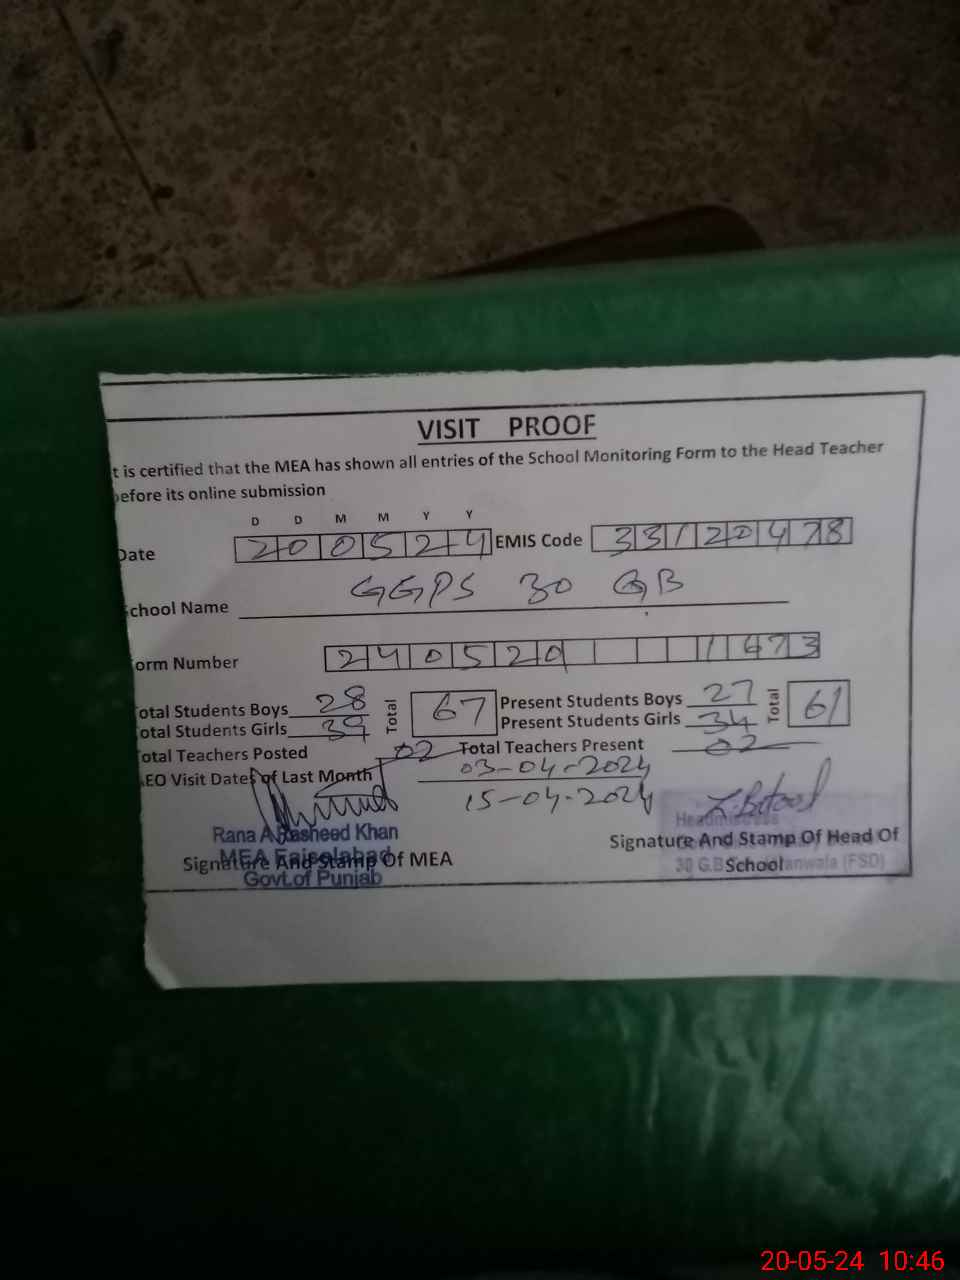 VISIT PROOF
t is certified that the MEA has shown all entries of the School Monitoring Form to the Head Teacher
before its online submission
D D M M Y Y
Date 200524 EMIS Code 33120478
School Name GGPS 30 GB
orm Number 240520 1673
otal Students Boys 28 Total 67 Present Students Boys 27 Total 61
otal Students Girls 39 Present Students Girls 34
otal Teachers Posted 02 Total Teachers Present 02
AEO Visit Dates of Last Month 03-04-2024
15-04-2024
Z.Batool
Headmistress
Rana A Rasheed Khan
MEA Faisalabad
Govt.of Punjab
Signature And Stamp Of MEA
Signature And Stamp Of Head Of
School
30 G.B anwala (FSD)
20-05-24 10:46